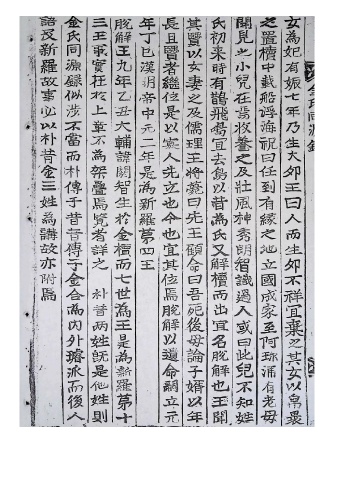 金氏同源錄
女為妃有娠七年乃生大卵王曰人而生卵不祥宜棄之其女以帛裹
之置櫝中載船浮海祝曰任到有緣之地立國成家至阿珍浦有老母
開見也小兒在焉收養之及壯風神秀朗智識過人或曰此兒不知姓
氏初來時有鵲飛鳴宜去鳥以昔為氏又解櫝而出宜名脫解也王聞
其賢以女妻之及儒理王將薨曰先王顧命曰吾死後毋論子婿以年
長且賢者継位是以寡人先立也今也宜其位焉脫解以遺命嗣立元
年丁巳漢明帝中元二年是為新羅第四王
脫解王九年乙丑大輔諱閼智生於金櫝而七世為王是為新羅第十
三王事實在於上章不為架疊焉覽者詳之 朴昔兩姓旣是他姓則
金氏同源錄似涉不當而朴傳于昔昔傳于金合為內外璿派而後人
語及新羅故事必以朴昔金三姓為講故亦附焉